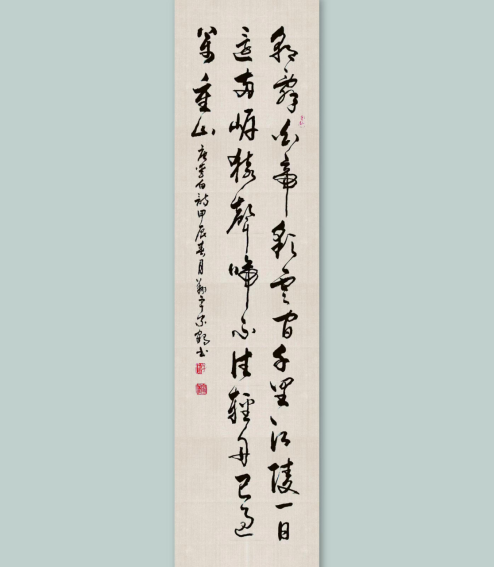 朝辞白帝彩云间千里江陵一日
还两岸猿声啼不住轻舟已过
万重山
唐李白诗甲辰春月